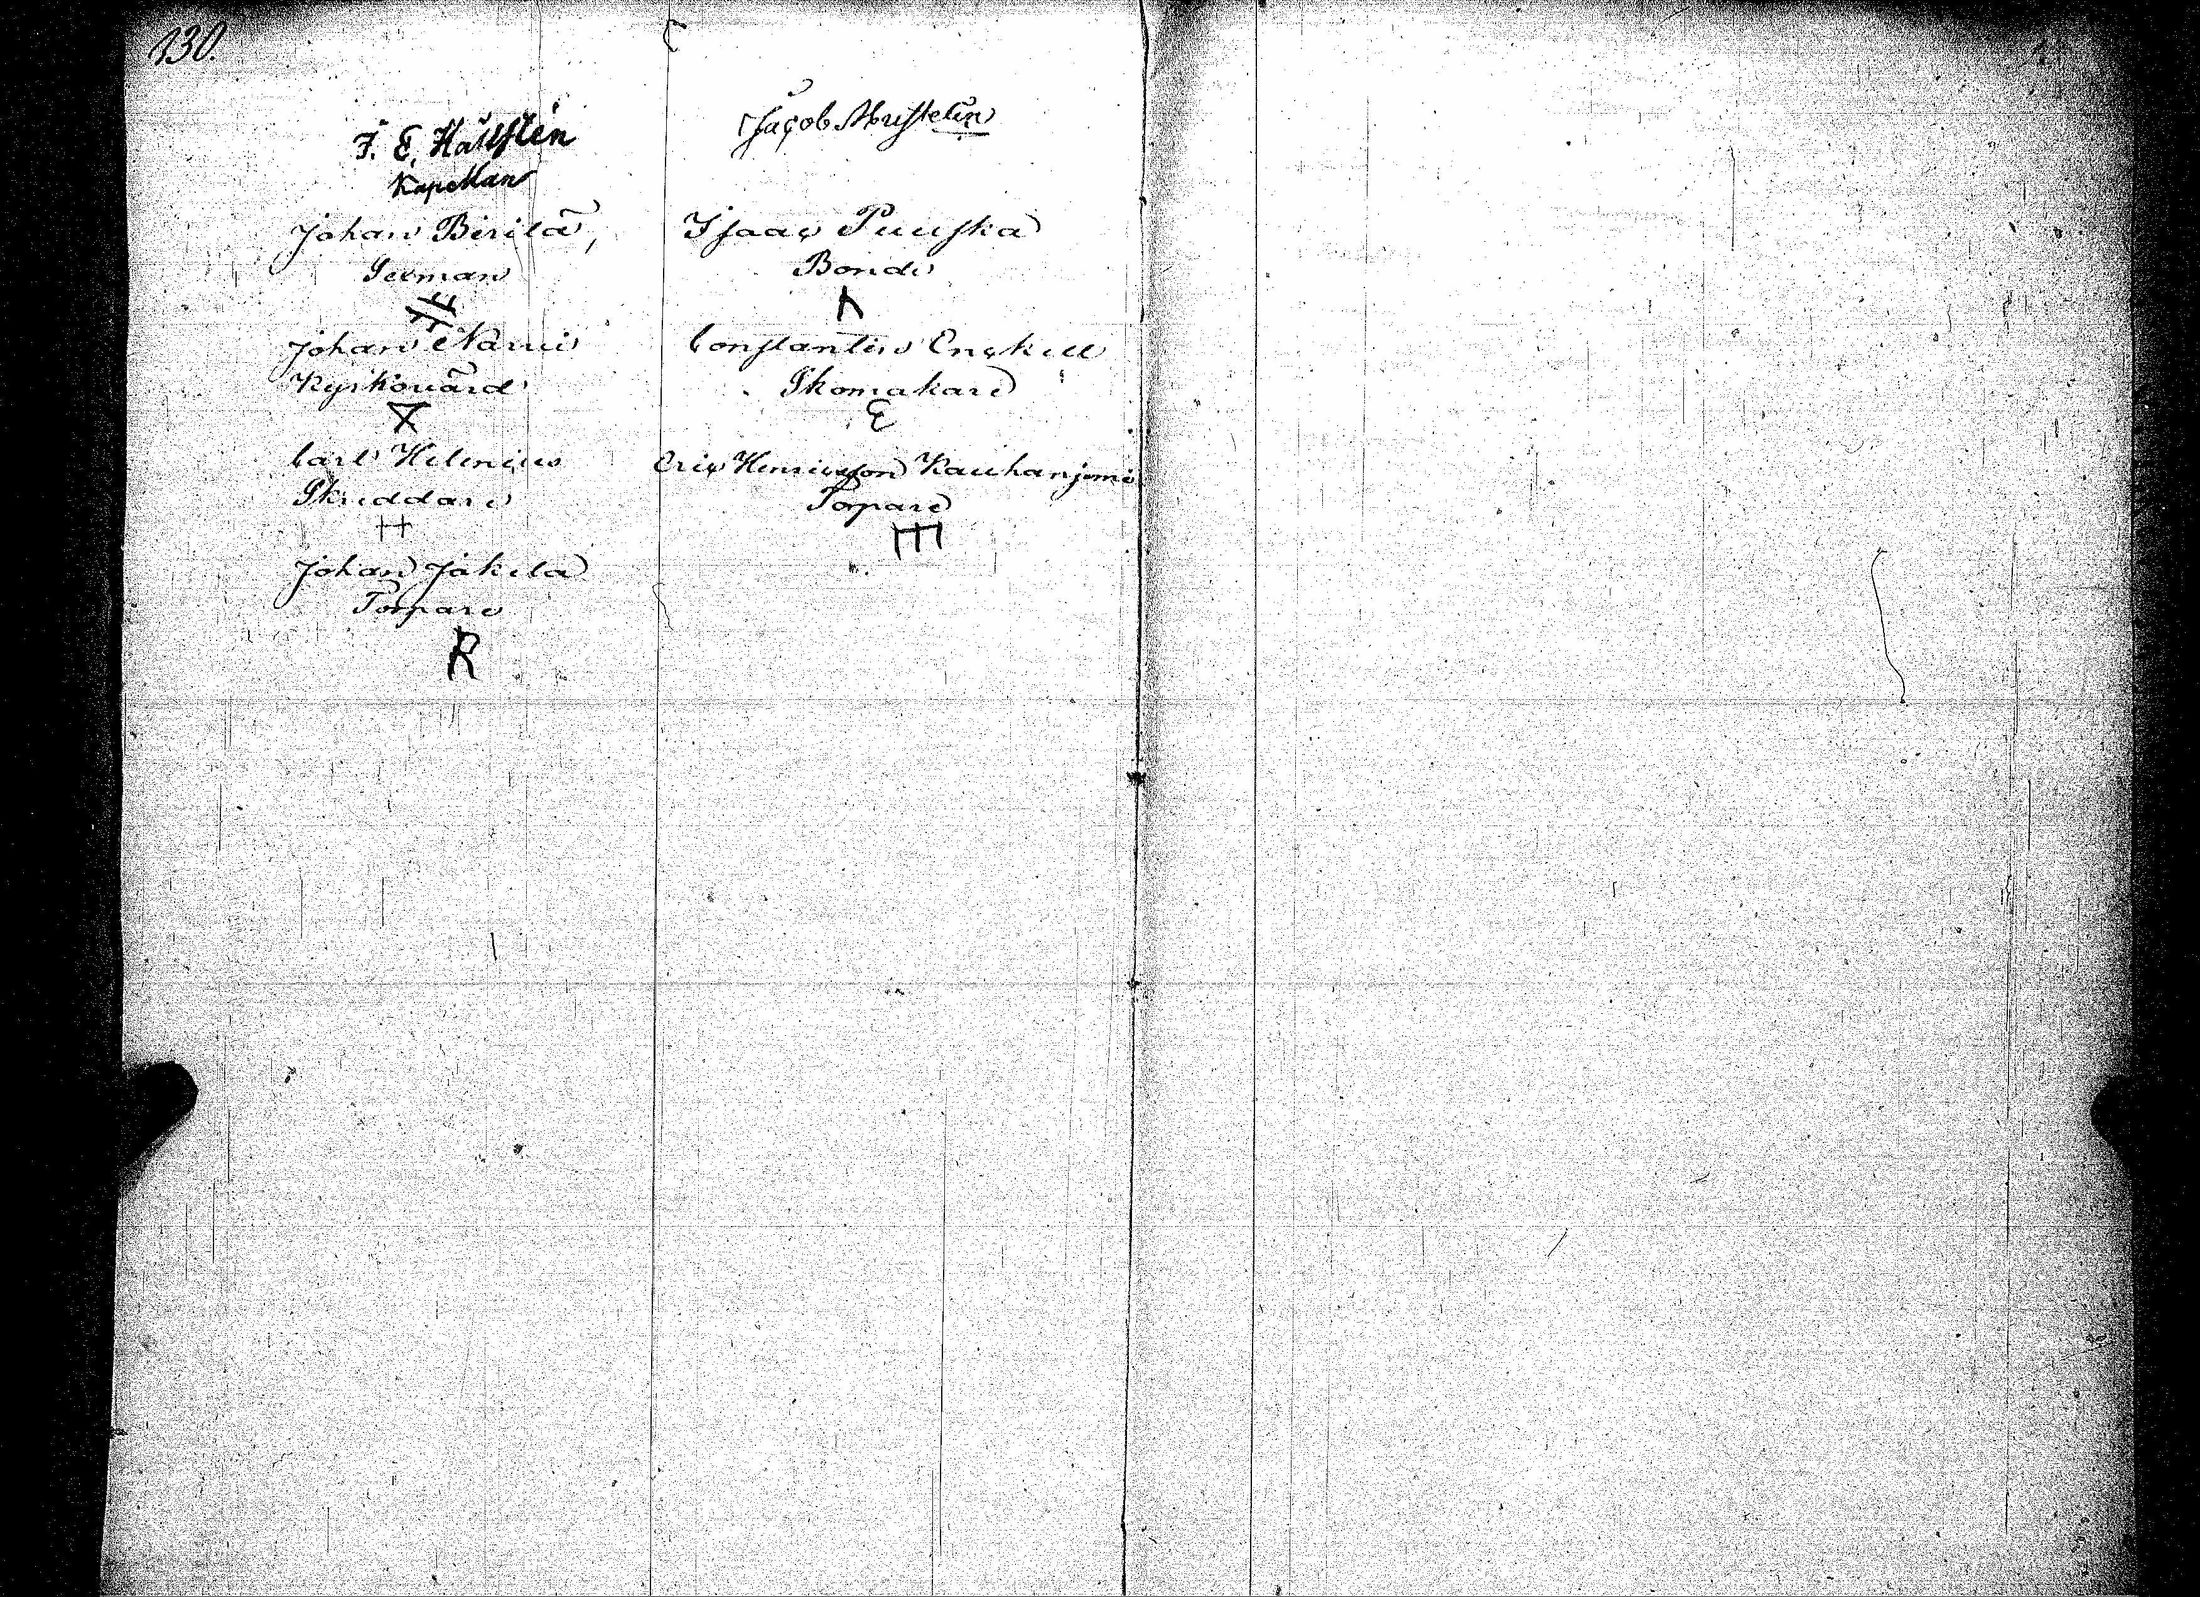 130.
F. E. Hällstén
Kapellan
Johan Berilä,
Sexman
Johan Narvi
Kyrkovärd
X
Carl Helenius
Skreddare
Johan Jäkelä
Torpare
R
Jacob Mustelin
Isaac Puuska
Bonde
Constantin Enckell
Skomakare
E
Eric Henricsson Kauhanjemi
Torpare